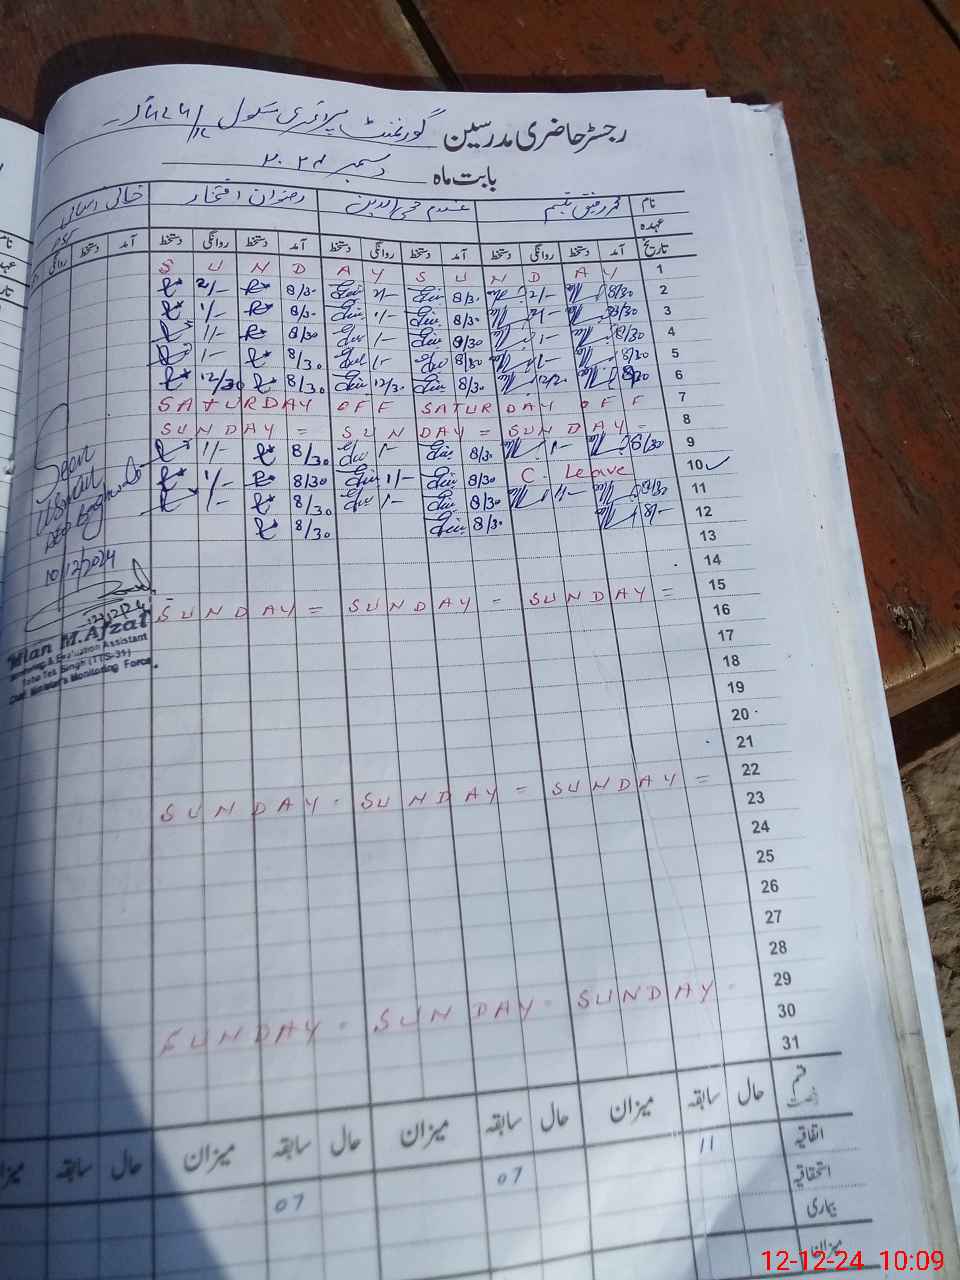 رجسٹر حاضری مدرسین گورنمنٹ پرائمری سکول
بابت ماہ دسمبر ۲۰۲۴
نام قمر رفیق تبسم غلام محی الدین رضوان افتخار خالی اسامی
عہدہ
تاریخ آمد دستخط روانگی دستخط آمد دستخط روانگی دستخط آمد دستخط روانگی دستخط آمد دستخط روانگی
1 SUNDAY SUNDAY
2 8/30 2/- 8/30 2/- 8/30 2/-
3 8/30 2/- 8/30 1/- 8/30 1/-
4 8/30 1- 8/30 1- 8/30 1/-
5 8/30 1- 8/30 1- 8/30 1-
6 8/30 12/30 8/30 12/30 8/30 12/30
7 SATURDAY OFF SATURDAY OFF
8 SUNDAY = SUNDAY = SUNDAY =
9 8/30 1- 8/30 1- 8/30 1/-
10 C. Leave 8/30 1/- 8/30 1/-
11 8/30 1/- 8/30 1- 8/30 1/-
12 8/- 8/30 8/30
13
14
15 SUNDAY = SUNDAY - SUNDAY =
16
17
18
19
20
21
22 SUNDAY - SUNDAY = SUNDAY =
23
24
25
26
27
28
29 SUNDAY - SUNDAY - SUNDAY -
30
31
Seen
Usman
10/12/2024
12/12/24
Mian M. Afzal
Monitoring & Evaluation Assistant
Toba Tek Singh (TTS-31)
Chief Minister's Monitoring Force
قسم رخصت حال سابقہ میزان حال سابقہ میزان حال سابقہ میزان حال سابقہ
اتفاقیہ 11 07 07
استحقاقیہ
بیماری
میزان
12-12-24 10:09